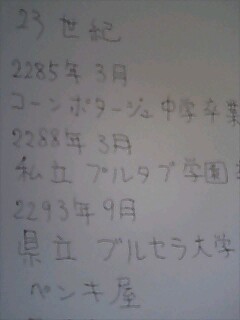 23世紀
2285年3月
コーンポタージュ中学卒業
2288年3月
私立プルタブ学園
2293年9月
県立ブルセラ大学
ペンキ屋